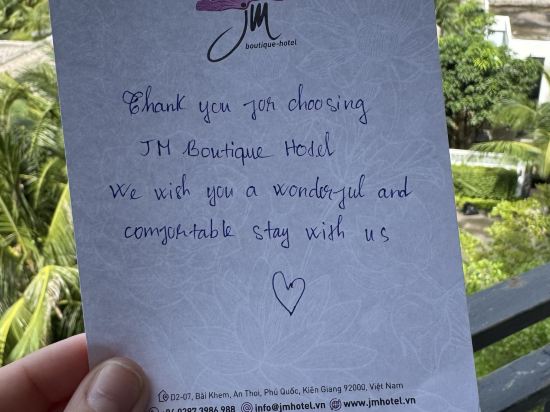 jm
boutique-hotel
Thank you for choosing
JM Boutique Hotel
We wish you a wonderful and
comfortable stay with us
D2-07, Bãi Khem, An Thoi, Phú Quốc, Kiên Giang 92000, Việt Nam
0297 3986 988 info@jmhotel.vn www.jmhotel.vn